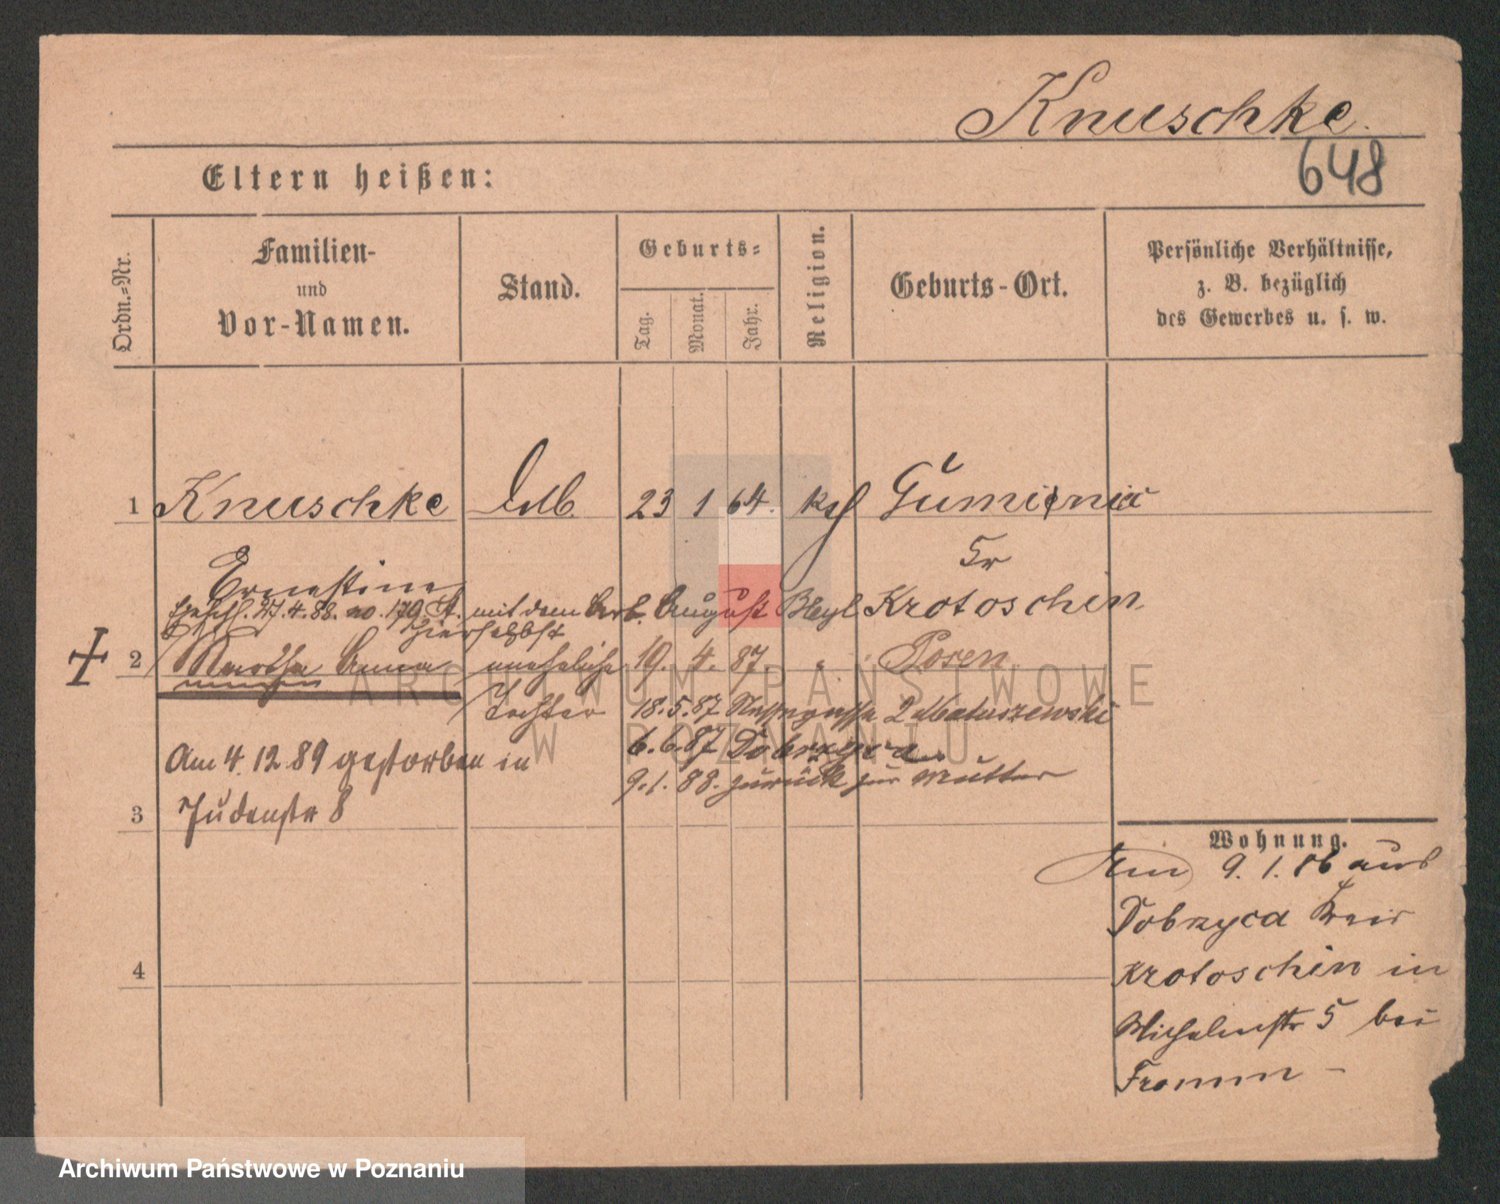 Knuschke.
648
Eltern heißen:
Ordn.-Nr.
Familien-
und
Vor-Namen.
Stand.
Geburts-
Tag.
Monat.
Jahr.
Religion.
Geburts-Ort.
Persönliche Verhältnisse,
z. B. bezüglich
des Gewerbes u. s. w.
1 Knuschke 23 1 64. kth Gumienia
Kr
Ernestine Krotoschin
4. 88. no. 170 mit dem Arb. August Beyl
hierselbst
2 Martha Anna uneheliche 19. 4. 87 " Posen
Tochter 18.5.87 2 Matuszewski
6.6.87 Dobrzyca.
9.1.88. zurück zur Mutter
Am 4.12.89 gestorben in
Judenstr 8
3
4
Wohnung.
Am 9.1.86 aus
Dobrzyca Kreis
Krotoschin in
Wilhelmstr 5 bei
Fromm -
ARCHIWUM PAŃSTWOWE
W POZNANIU
Archiwum Państwowe w Poznaniu